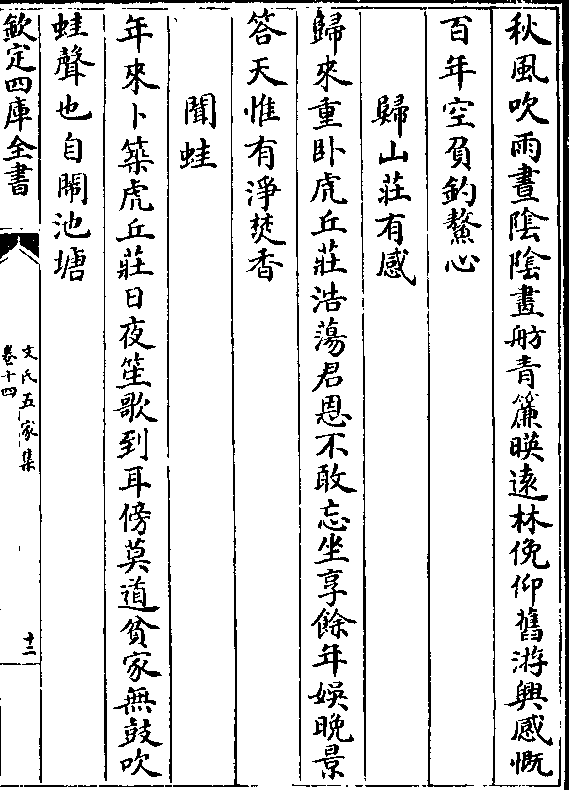 秋風吹雨晝陰陰畫舫青簾暎遠林俛仰舊游興感慨
百年空負釣鰲心
歸山莊有感
歸來重卧虎丘莊浩蕩君恩不敢忘坐享餘年娛晚景
答天惟有淨焚香
聞蛙
年來卜築虎丘莊日夜笙歌到耳傍莫道貧家無鼓吹
蛙聲也自鬧池塘
欽定四庫全書
文氏五家集
卷十四
十二